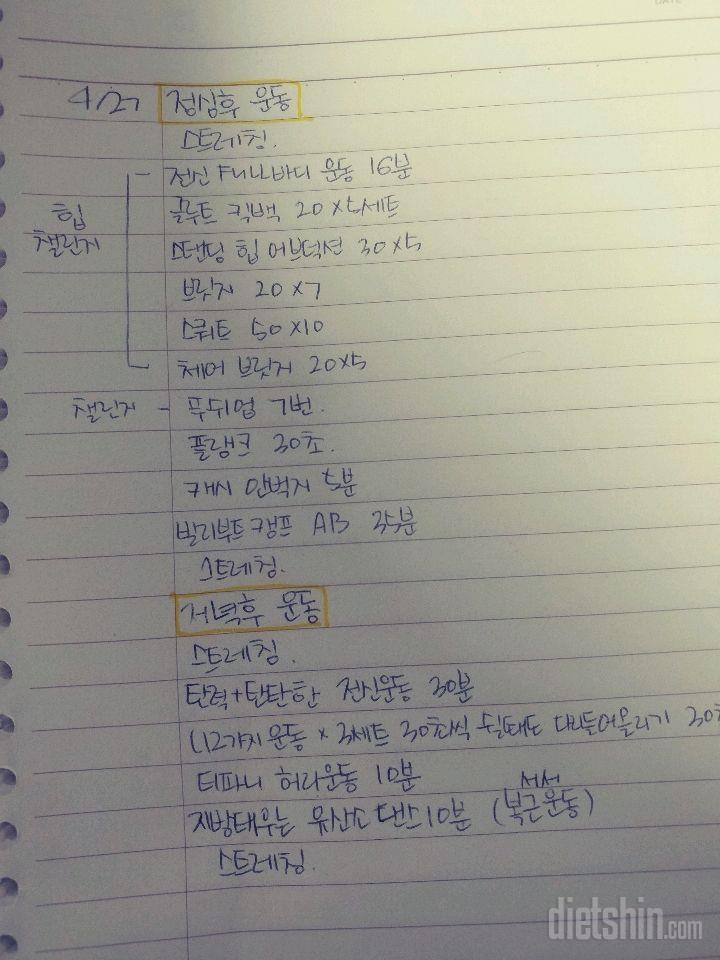 DATE
4/27 점심후 운동
스트레칭.
- 전신 다나바디 운동 16분
힙 챌린지
글루트 킥백 20×5세트
스탠딩 힙 어브덕션 30×5
브릿지 20×7
스쿼트 50×10
체어 브릿지 20×5
챌린지 - 푸쉬업 7번.
플랭크 30초.
캐시 안벅지 5분
발리부트캠프 AB 35분
스트레칭.
저녁후 운동
스트레칭.
탄력+탄탄한 전신운동 30분
(12가지 운동 × 3세트 30초씩 쉴때도 다리들어올리기 30초
티파니 허리운동 10분
지방태우는 유산소 댄스 10분 (서서 복근운동)
스트레칭.
dietshin.com